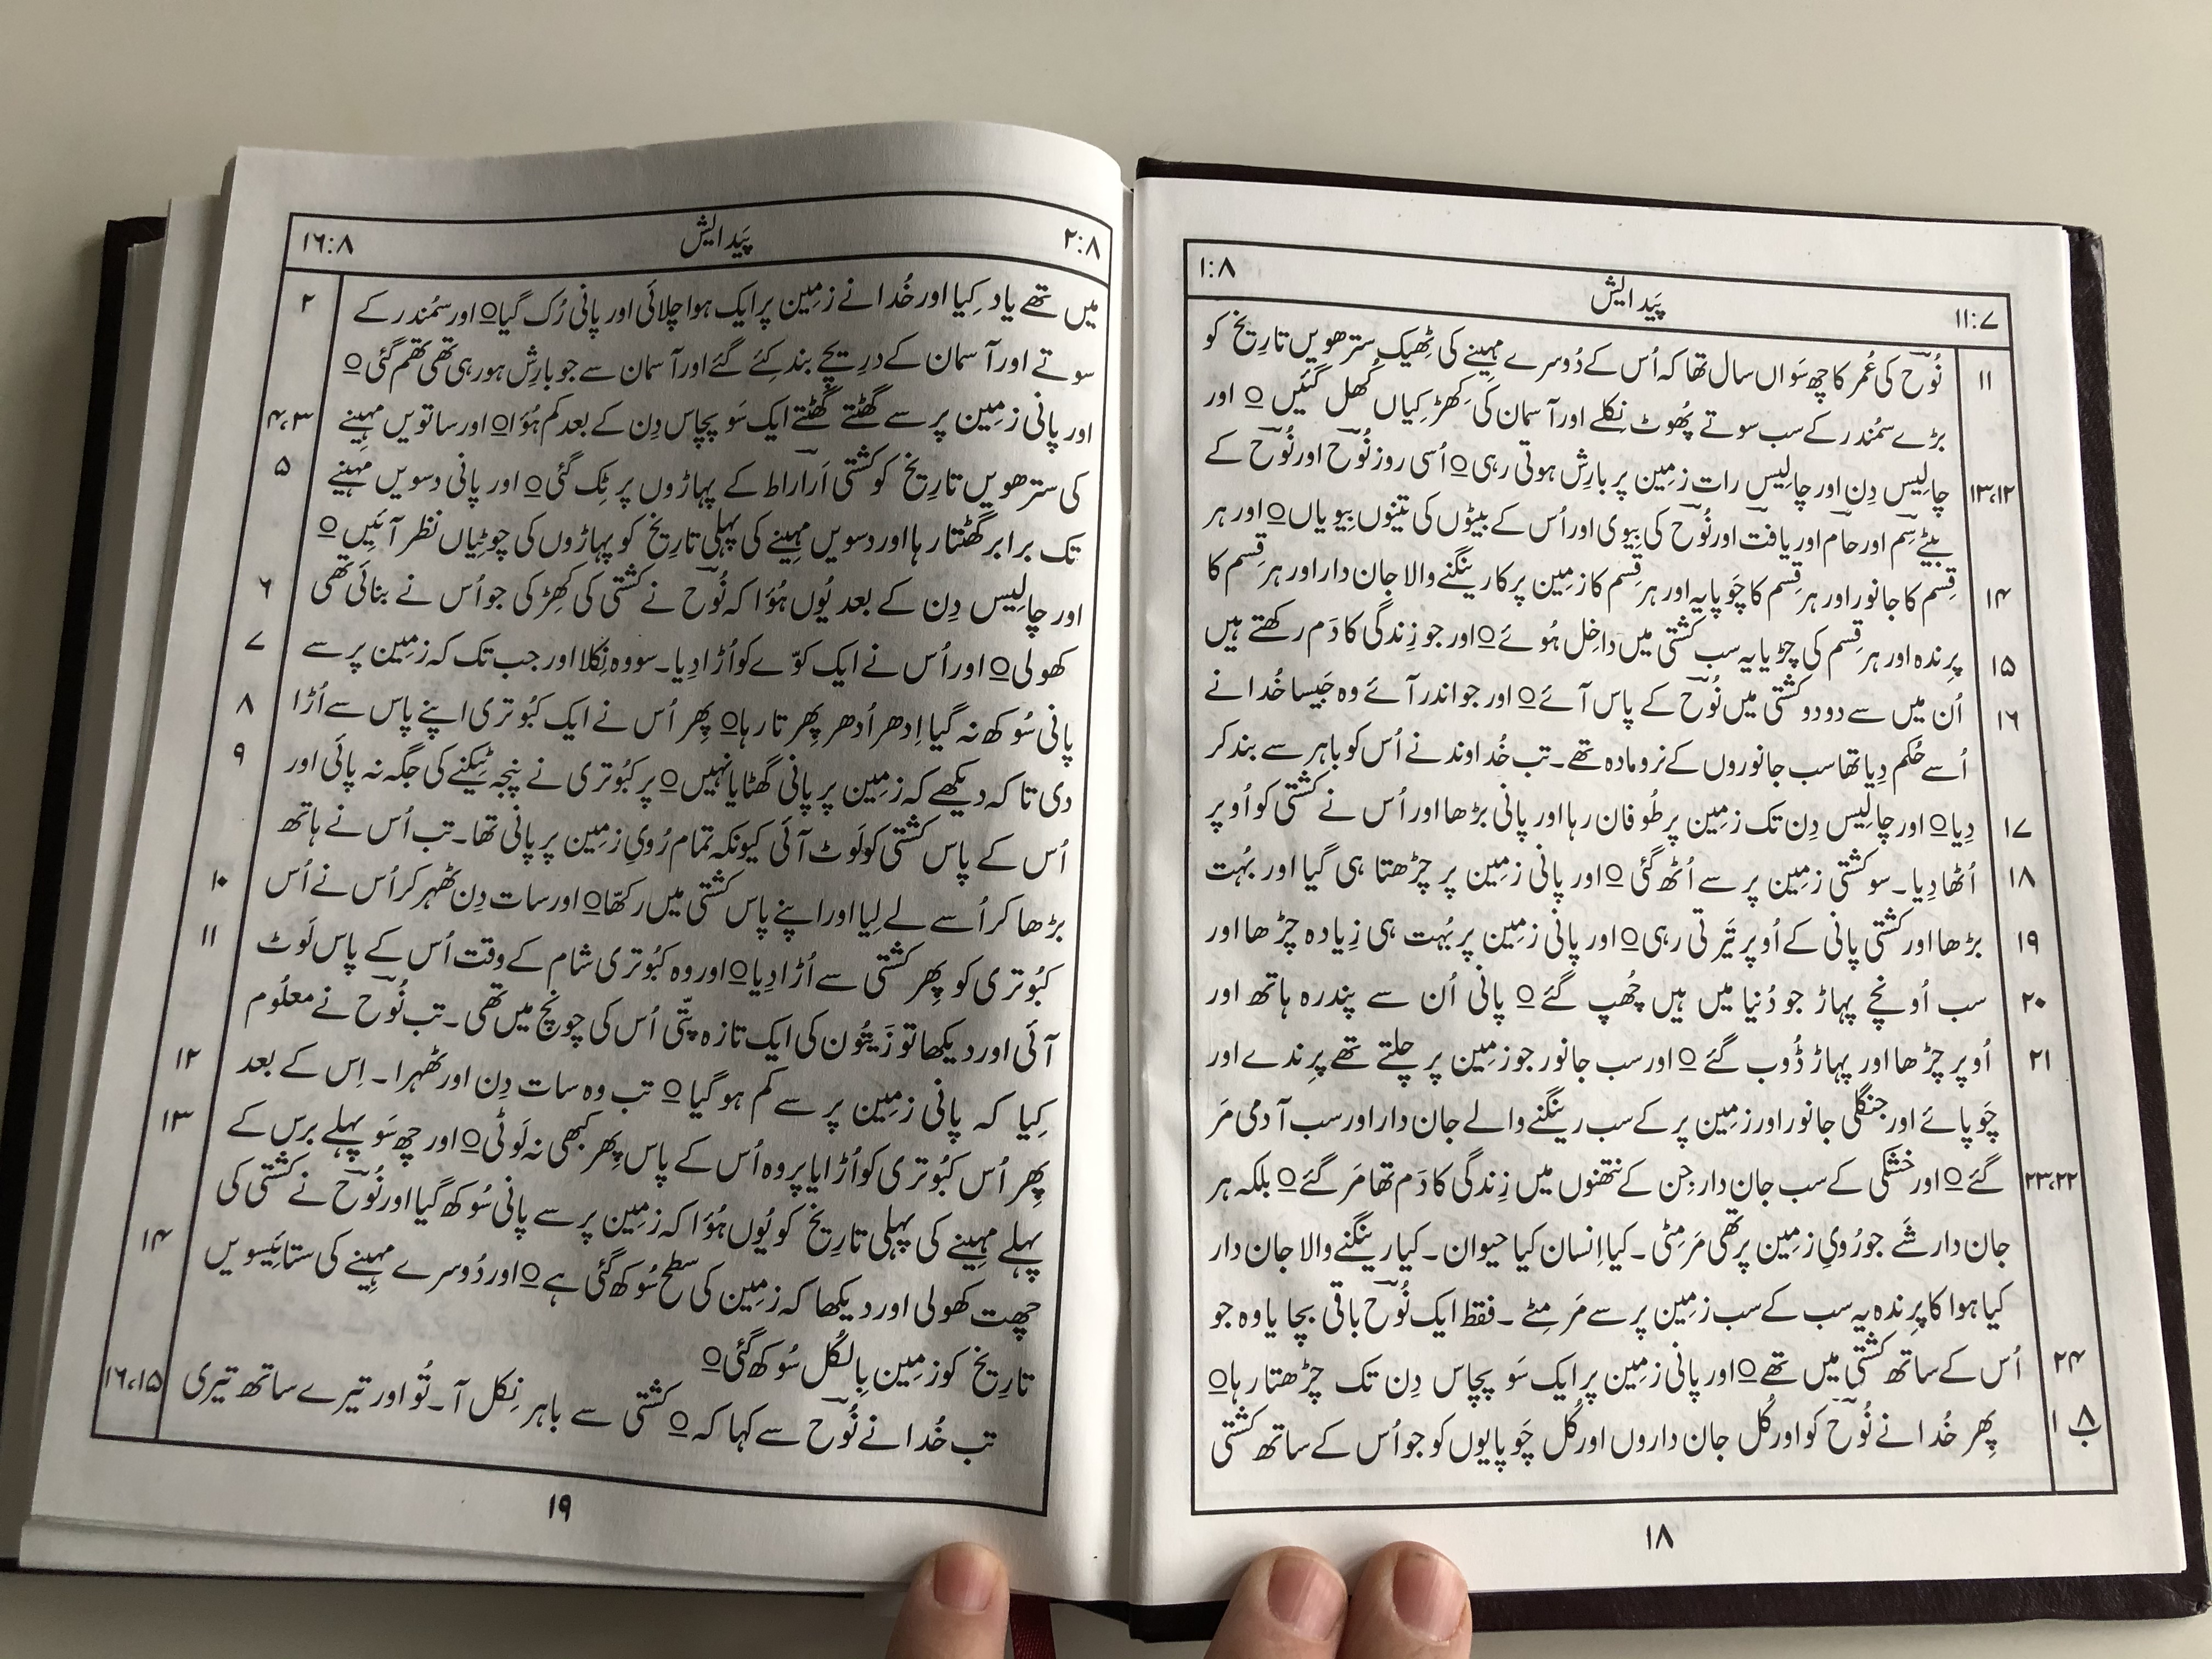 ۱۱:۷ پَیدایش ۱:۸
۱۱ نُوؔح کی عُمر کا چھ سَو اں سال تھا کہ اُس کے دُوسرے مہِینے کی ٹِھیک سترھوِیں تارِیخ کو
بڑے سمُندر کے سب سوتے پُھوٹ نِکلے اور آسمان کی کِھڑکِیاں کُھل گئِیں ○ اور
۱۳،۱۲ چالِیس دِن اور چالِیس رات زمِین پر بارِش ہوتی رہی ○ اُسی روز نُوؔح اور نُوؔح کے
بیٹے سِمؔ اور حامؔ اور یافتؔ اور نُوؔح کی بِیوی اور اُس کے بیٹوں کی تِینوں بِیویاں ○ اور ہر
۱۴ قِسم کا جانور اور ہر قِسم کا چَوپایہ اور ہر قِسم کا زمِین پر کا رینگنے والا جان دار اور ہر قِسم کا
۱۵ پرِندہ اور ہر قِسم کی چِڑیا یہ سب کشتی میں داخِل ہُوئے ○ اور جو زِندگی کا دَم رکھتے ہیں
۱۶ اُن میں سے دو دو کشتی میں نُوؔح کے پاس آئے ○ اور جو اندر آئے وہ جَیسا خُدا نے
اُسے حُکم دِیا تھا سب جانوروں کے نر و مادہ تھے۔ تب خُداوند نے اُس کو باہر سے بند کر
۱۷ دِیا ○ اور چالِیس دِن تک زمِین پر طُوفان رہا اور پانی بڑھا اور اُس نے کشتی کو اُوپر
۱۸ اُٹھا دِیا۔ سو کشتی زمِین پر سے اُٹھ گئی ○ اور پانی زمِین پر چڑھتا ہی گیا اور بُہت
۱۹ بڑھا اور کشتی پانی کے اُوپر تَیرتی رہی ○ اور پانی زمِین پر بُہت ہی زِیادہ چڑھا اور
۲۰ سب اُونچے پہاڑ جو دُنیا میں ہیں چُھپ گئے ○ پانی اُن سے پندرہ ہاتھ اور
۲۱ اُوپر چڑھا اور پہاڑ ڈُوب گئے ○ اور سب جانور جو زمِین پر چلتے تھے پرِندے اور
چَوپائے اور جنگلی جانور اور زمِین پر کے سب رینگنے والے جان دار اور سب آدمی مَر
۲۳،۲۲ گئے ○ اور خُشکی کے سب جان دار جِن کے نتھنوں میں زِندگی کا دَم تھا مَر گئے ○ بلکہ ہر
جان دار شَے جو رُویِ زمِین پر تھی مَر مِٹی۔ کیا اِنسان کیا حَیوان۔ کیا رینگنے والا جان دار
کیا ہوا کا پرِندہ یہ سب کے سب زمِین پر سے مَر مِٹے۔ فقط ایک نُوؔح باقی بچا یا وہ جو
۲۴ اُس کے ساتھ کشتی میں تھے ○ اور پانی زمِین پر ایک سَو پچاس دِن تک چڑھتا رہا ○
۸ب ۱ پِھر خُدا نے نُوؔح کو اور کُل جان داروں اور کُل چَوپایوں کو جو اُس کے ساتھ کشتی
۱۸
۲:۸ پَیدایش ۱۶:۸
۲ میں تھے یاد کِیا اور خُدا نے زمِین پر ایک ہوا چلائی اور پانی رُک گیا ○ اور سمُندر کے
سوتے اور آسمان کے درِیچے بند کِئے گئے اور آسمان سے جو بارِش ہو رہی تھی تھم گئی ○
۴،۳ اور پانی زمِین پر سے گھٹتے گھٹتے ایک سَو پچاس دِن کے بعد کم ہُؤا ○ اور ساتویں مہِینے
۵ کی سترھوِیں تارِیخ کو کشتی اَراراؔط کے پہاڑوں پر ٹِک گئی ○ اور پانی دسویں مہِینے
تک برابر گھٹتا رہا اور دسویں مہِینے کی پہلی تارِیخ کو پہاڑوں کی چوٹِیاں نظر آئِیں ○
۶ اور چالِیس دِن کے بعد یُوں ہُؤا کہ نُوؔح نے کشتی کی کِھڑکی جو اُس نے بنائی تھی
۷ کھولی ○ اور اُس نے ایک کوّے کو اُڑا دِیا۔ سو وہ نِکلا اور جب تک کہ زمِین پر سے
۸ پانی سُوکھ نہ گیا اِدھر اُدھر پِھرتا رہا ○ پِھر اُس نے ایک کبُوتری اپنے پاس سے اُڑا
۹ دی تاکہ دیکھے کہ زمِین پر پانی گھٹا یا نہیں ○ پر کبُوتری نے پنجہ ٹیکنے کی جگہ نہ پائی اور
اُس کے پاس کشتی کو لَوٹ آئی کیونکہ تمام رُویِ زمِین پر پانی تھا۔ تب اُس نے ہاتھ
۱۰ بڑھا کر اُسے لے لِیا اور اپنے پاس کشتی میں رکھّا ○ اور سات دِن ٹھہر کر اُس نے اُس
۱۱ کبُوتری کو پِھر کشتی سے اُڑا دِیا ○ اور وہ کبُوتری شام کے وقت اُس کے پاس لَوٹ
آئی اور دیکھا تو زَیتُون کی ایک تازہ پتّی اُس کی چونچ میں تھی۔ تب نُوؔح نے معلُوم
۱۲ کِیا کہ پانی زمِین پر سے کم ہو گیا ○ تب وہ سات دِن اور ٹھہرا۔ اِس کے بعد
۱۳ پِھر اُس کبُوتری کو اُڑایا پر وہ اُس کے پاس پِھر کبھی نہ لَوٹی ○ اور چھ سَو پہلے برس کے
پہلے مہِینے کی پہلی تارِیخ کو یُوں ہُؤا کہ زمِین پر سے پانی سُوکھ گیا اور نُوؔح نے کشتی کی
۱۴ چھت کھولی اور دیکھا کہ زمِین کی سطح سُوکھ گئی ہے ○ اور دُوسرے مہِینے کی ستائِیسوِیں
تارِیخ کو زمِین بِالکُل سُوکھ گئی ○
۱۶،۱۵ تب خُدا نے نُوؔح سے کہا کہ ○ کشتی سے باہر نِکل آ۔ تُو اور تیرے ساتھ تیری
۱۹